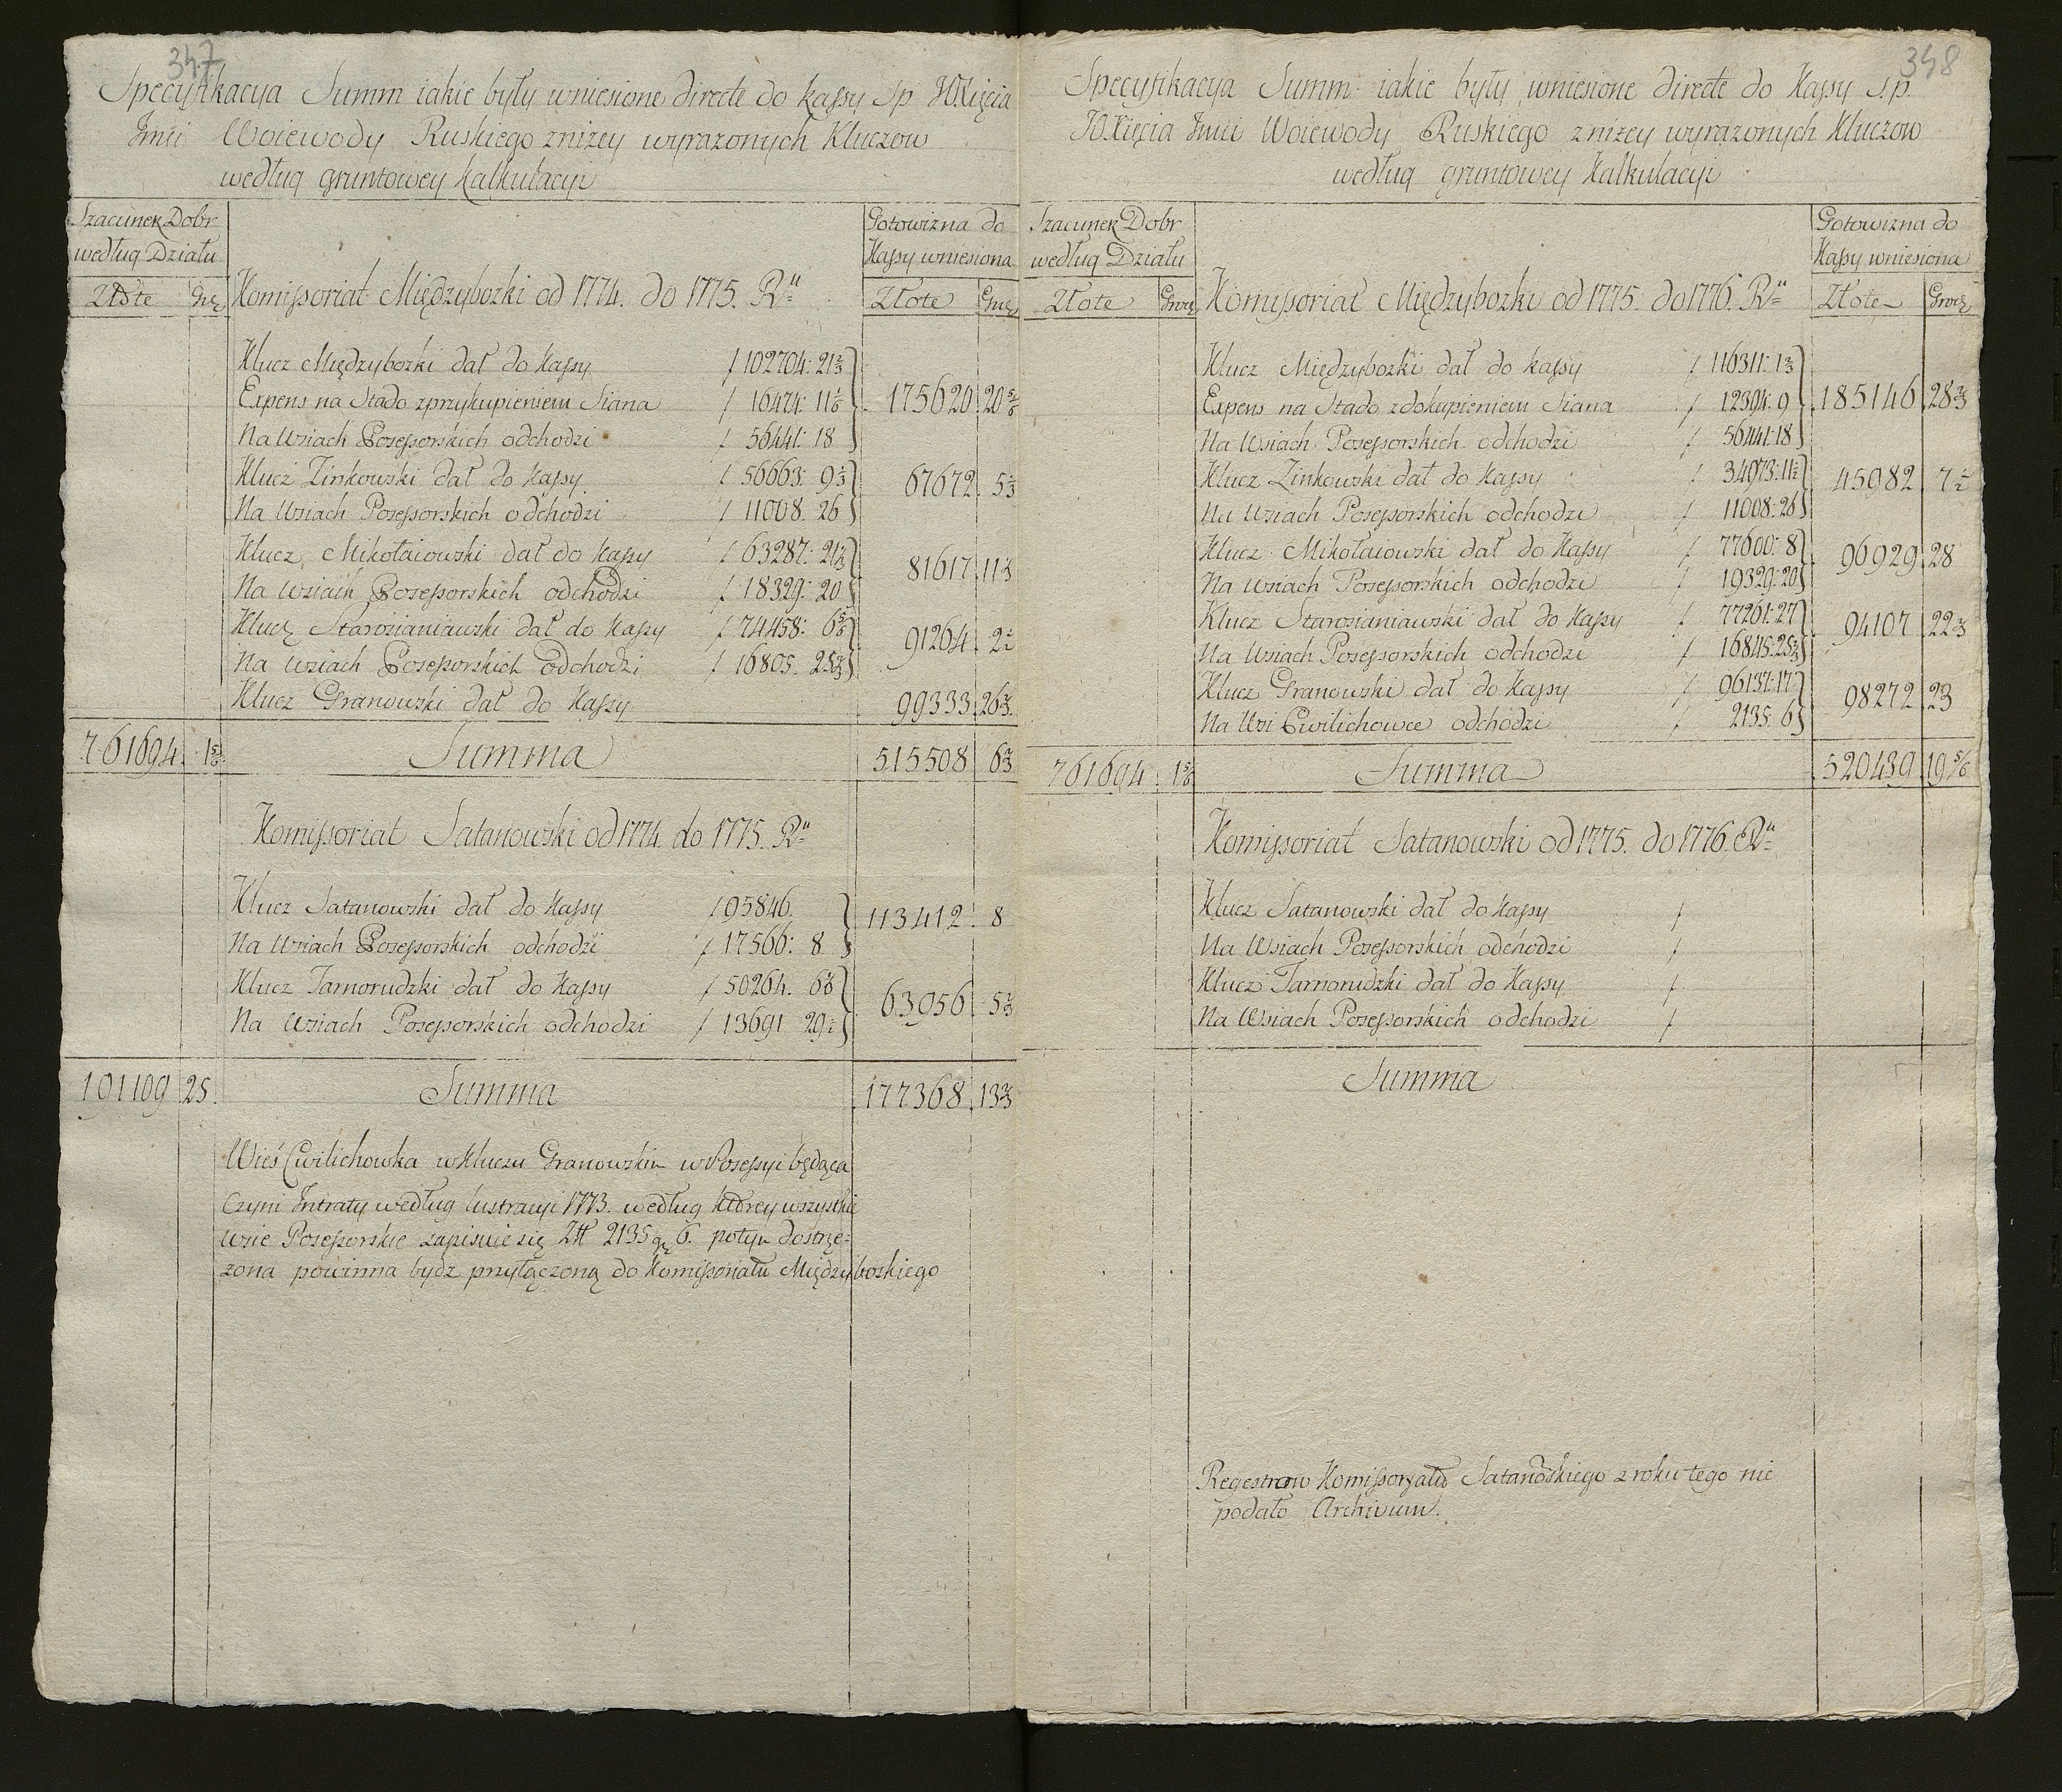 347
Specyfikacya Summ iakie były wniesione directe do kassy Sp JO.Xięcia
Jmci Woiewody Ruskiego zniżey wyrażonych Kluczow
według gruntowey kalkulacyi
Szacunek Dobr
według Działu
Złote
Komissoriat Międzybozki od 1774. do 1775. Ru
Gotowizna do
Kassy wniesiona
Złote
Klucz Międzybozki dał do Kassy / 102704: 21 2/3
Expens na Stado z przykupieniem Siana / 16474: 11 1/6 175620. 20 5/6
Na Wsiach Possessorskich odchodzi / 56441: 18
Klucz Zinkowski dał do Kassy / 56663: 9 1/3 67672. 5 1/3
Na Wsiach Possessorskich odchodzi / 11008. 26
Klucz Mikołaiowski dał do Kassy / 63287: 21 1/3 81617. 11 1/3
Na Wsiach Possessorskich odchodzi / 18329: 20
Klucz Starosianiawski dał do Kassy / 74458: 6 5/6 91264. 2 1/2
Na Wsiach Possessorskich odchodzi / 16805. 25 2/3
Klucz Granowski dał do Kassy 99333. 26 2/3
761694. 1 5/6 Summa 515508 6 2/3
Komissoriat Satanowski od 1774. do 1775. Ru
Klucz Satanowski dał do Kassy / 95846. 113412. 8
Na Wsiach Possessorskich odchodzi / 17566: 8
Klucz Tarnorudzki dał do Kassy / 50264. 6 1/6 63956. 5 2/3
Na Wsiach Possessorskich odchodzi / 13691 29 1/2
191109 25. Summa 177368. 13 2/3
Wieś Cwilichowka w Kluczu Granowskim w Possessyi będąca
Czyni Intraty według lustracyi 1773. według ktorey wszystkie
wsie Possessorskie zapisuie się Złł 2135 gr 6. potym dostrze-
zona powinna bydz przyłączoną do Komissoriatu Międzyboskiego
348
Specyfikacya Summ iakie były wniesione directe do Kassy S.p.
JO.Xięcia Jmci Woiewody Ruskiego zniżey wyrażonych Kluczow
według gruntowey Kalkulacyi
Szacunek Dobr
według Działu
Złote
Komissoriat Międzybozki od 1775. do 1776. Ru
Gotowizna do
Kassy wniesiona
Złote
Klucz Międzybozki dał do kassy / 116311: 1 2/3
Expens na Stado z dokupieniem Siana / 12394: 9 185146. 28 2/3
Na Wsiach Possessorskich odchodzi / 56441: 18
Klucz Zinkowski dał do Kassy / 34973: 11 1/2 45982. 7 1/2
Na Wsiach Possessorskich odchodzi / 11008: 26
Klucz Mikołaiowski dał do Kassy / 77600: 8 96929. 28
Na Wsiach Possessorskich odchodzi / 19329: 20
Klucz Starosianiawski dał do Kassy / 77261: 27 94107. 22 2/3
Na Wsiach Possessorskich odchodzi / 16845: 25 2/3
Klucz Granowski dał do Kassy / 96137: 17 98272. 23
Na Wsi Cwilichowce odchodzi / 2135. 6
761694. 1 5/6 Summa 520439. 19 5/6
Komissoriat Satanowski od 1775. do 1776. Ru
Klucz Satanowski dał do Kassy /
Na Wsiach Possessorskich odchodzi /
Klucz Tarnorudzki dał do Kassy /
Na Wsiach Possessorskich odchodzi /
Summa
Regestrow Komissoryatu Satanowskiego z roku tego nie
podało Archivum.